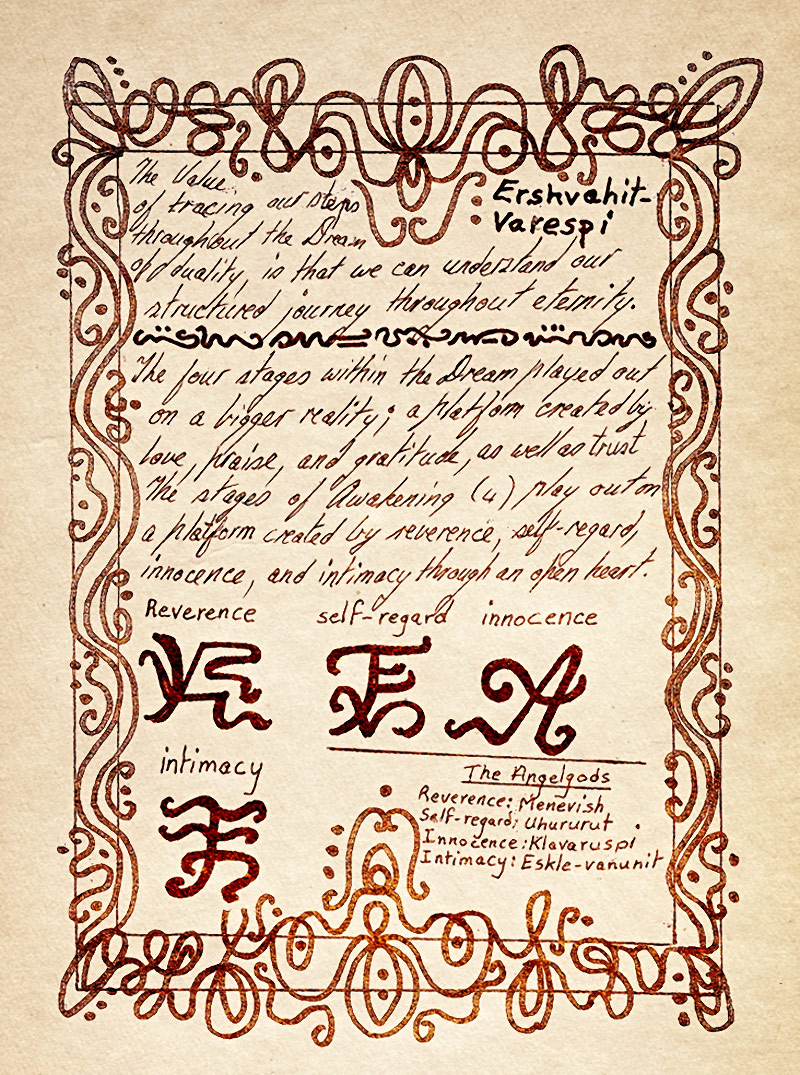 The Value
of tracing our steps
throughout the Dream
of duality, is that we can understand our
structured journey throughout eternity.
Ershvahit-
Varespi
The four stages within the Dream played out
on a bigger reality; a platform created by
love, praise, and gratitude, as well as trust
The stages of Awakening (4) play out on
a platform created by reverence, self-regard,
innocence, and intimacy through an open heart.
Reverence self-regard innocence
intimacy
The Angelgods
Reverence: Menevish
Self-regard: Uhururut
Innocence: Klavaruspi
Intimacy: Eskle-vanunit